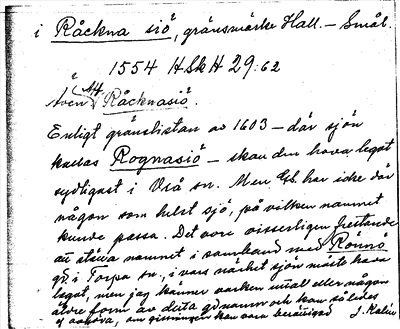 i Råckna siö, gränsmärke Hall. – Smål.
1554 HSkH 29:62
även Råcknasiö.
Enligt gränslistan av 1603 – där sjön
kallas Rognasiö – skall den hava legat
sydligast i Viså sn. Men Gk. har icke där
någon som helst sjö, på vilken namnet
kunde passa. Det vore visserligen frestande
att ställa namnet i samband med Rönnö
gd. i Torpa sn., i vars närhet sjön måste hava
legat, men jag känner varken uttal eller någon
äldre form av detta gdnamn och kan således
ej avgöra, om gissningen kan vara berättigad J. Kalén